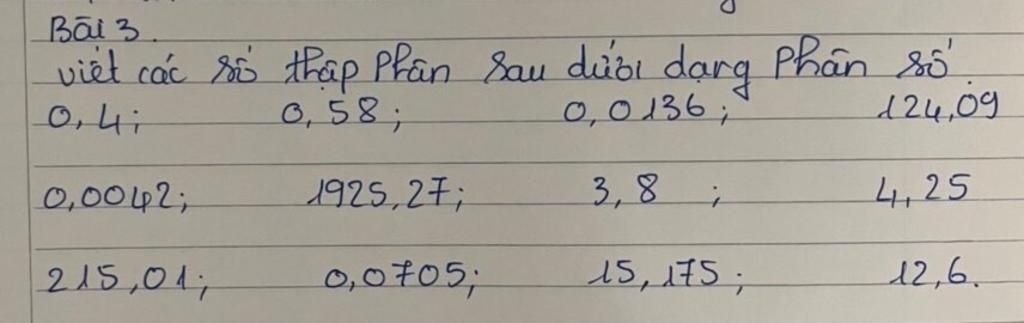 Bài 3.
viết các số thập phân sau dưới dạng phân số.
0,4; 0,58; 0,0136; 124,09
0,0042; 1925,27; 3,8 ; 4,25
215,01; 0,0705; 15,175; 12,6.